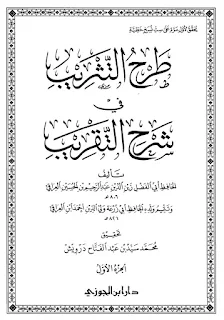 يحقق لأول مرة على ست نسخ خطية
طرح التثريب
في
شرح التقريب
تأليف
الحافظ أبي الفضل زين الدين عبد الرحيم بن الحسين العراقي
٨٠٦ هـ
وتتميم ولده الحافظ أبي زرعة ولي الدين أحمد ابن العراقي
٨٢٦ هـ
تحقيق
محمد سيد بن عبد الفتاح درويش
الجزء الأول
دار ابن الجوزي